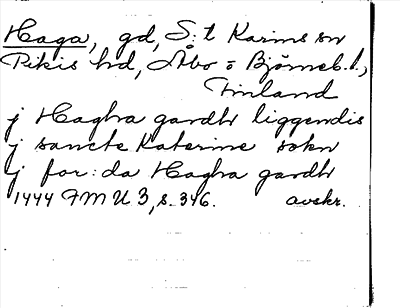 Haga, gd, S:t Karins sn
Pikis hd, Åbo o Björneb. l.,
Finland
j Hagha gardh liggendis
j sancte Katerine sokn
j for:da Hagha gardh
1444 FMU 3, s. 346. avskr.